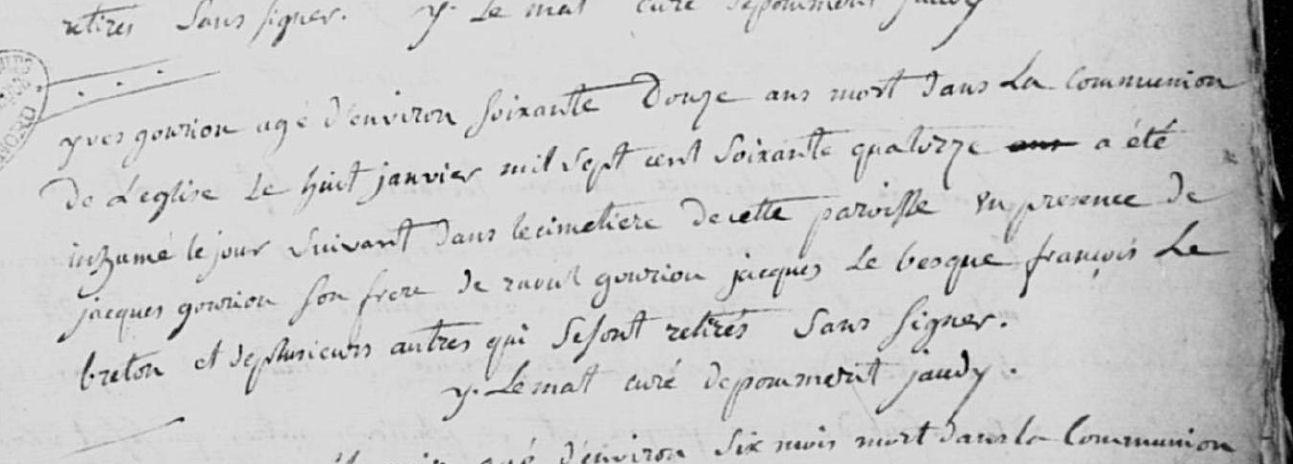 retires Sans signer. y. Le mat curé depommerit jaudy
yves gourion agé d'environ soixante Douze ans mort dans La Communion
de L'eglise Le huit janvier mil sept cent soixante quatorze ans a été
inhumé le jour suivant dans lecimetiere decette paroisse en presence de
jacques gourion son frere de raoul gourion jacques Le besque françois Le
breton et deplusieurs autres qui Sesont retirés Sans signer.
y. Le mat curé depommerit jaudy.
agé d'environ six mois mort dans la Communion